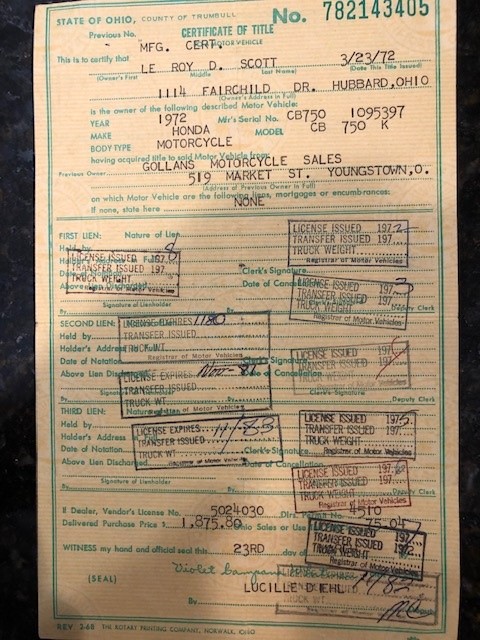 STATE OF OHIO, COUNTY OF TRUMBULL No. 782143405
Previous No. CERTIFICATE OF TITLE
MFG. CERT. MOTOR VEHICLE
This is to certify that LE ROY D. SCOTT 3/23/72
(Owner's First Middle Last Name) (Date This Title Issued)
1114 FAIRCHILD DR. HUBBARD,OHIO
(Owner's Address in Full)
is the owner of the following described Motor Vehicle:
YEAR 1972 Mfr's Serial No. CB750 1095397
MAKE HONDA MODEL CB 750 K
BODY TYPE MOTORCYCLE
having acquired title to said Motor Vehicle from
GOLLANS MOTORCYCLE SALES
Previous Owner 519 MARKET ST. YOUNGSTOWN,O.
(Address of Previous Owner in Full)
on which Motor Vehicle are the following liens, mortgages or encumbrances:
If none, state here NONE
FIRST LIEN: Nature of Lien
LICENSE ISSUED 1972
TRANSFER ISSUED 197
TRUCK WEIGHT
Registrar of Motor Vehicles
Held by
LICENSE ISSUED 197
TRANSFER ISSUED 197
TRUCK WEIGHT
Registrar of Motor Vehicles
Clerk's Signature
Above Lien Discharged Date of Cancellation
LICENSE ISSUED 1973
TRANSFER ISSUED 197
TRUCK WEIGHT
Registrar of Motor Vehicles
Deputy Clerk
Signature of Lienholder By
SECOND LIEN:
LICENSE EXPIRES 1180
TRANSFER ISSUED
TRUCK WT
Registrar of Motor Vehicles
Held by
Holder's Address
Date of Notation Clerk's Signature
Above Lien Discharged Date of Cancellation
LICENSE ISSUED 197
TRANSFER ISSUED 197
TRUCK WEIGHT
Registrar of Motor Vehicles
LICENSE EXPIRES
TRANSFER ISSUED
TRUCK WT.
Registrar of Motor Vehicles
Clerk's Signature
Deputy Clerk
THIRD LIEN: Nature of Lien
LICENSE ISSUED 1975
TRANSFER ISSUED 197
TRUCK WEIGHT
Registrar of Motor Vehicles
Held by
Holder's Address
LICENSE EXPIRES 11-83
TRANSFER ISSUED
TRUCK WT
Registrar of Motor Vehicles
Clerk's Signature
Date of Notation
Above Lien Discharged Date of Cancellation
LICENSE ISSUED 197
TRANSFER ISSUED 197
TRUCK WEIGHT
Registrar of Motor Vehicles
Deputy Clerk
Signature of Lienholder By
If Dealer, Vendor's License No. 5024030 Dlrs. Permit No. 4510
Delivered Purchase Price $ 1,875.80 Ohio Sales or Use
LICENSE ISSUED 197
TRANSFER ISSUED 197
TRUCK WEIGHT
Registrar of Motor Vehicles
WITNESS my hand and official seal this 23RD day of
(SEAL)
LUCILLE DIEHL
By
REV 2-68 THE ROTARY PRINTING COMPANY, NORWALK, OHIO